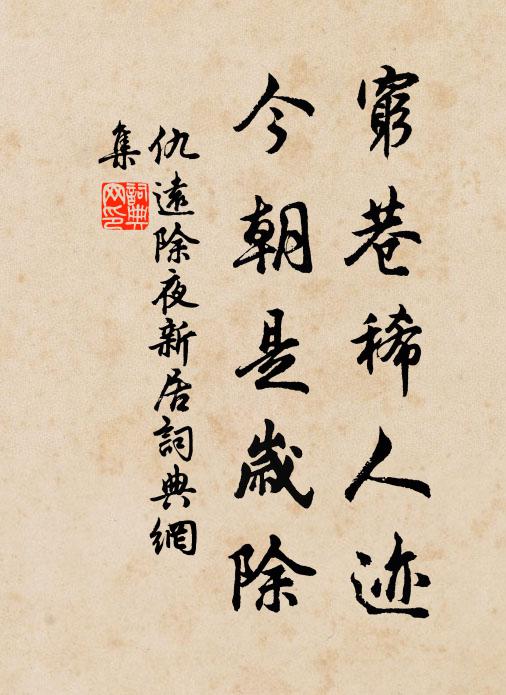 窮巷稀人迹
今朝是歲除
仇遠除夜新居詞典網
集
詞典
网印